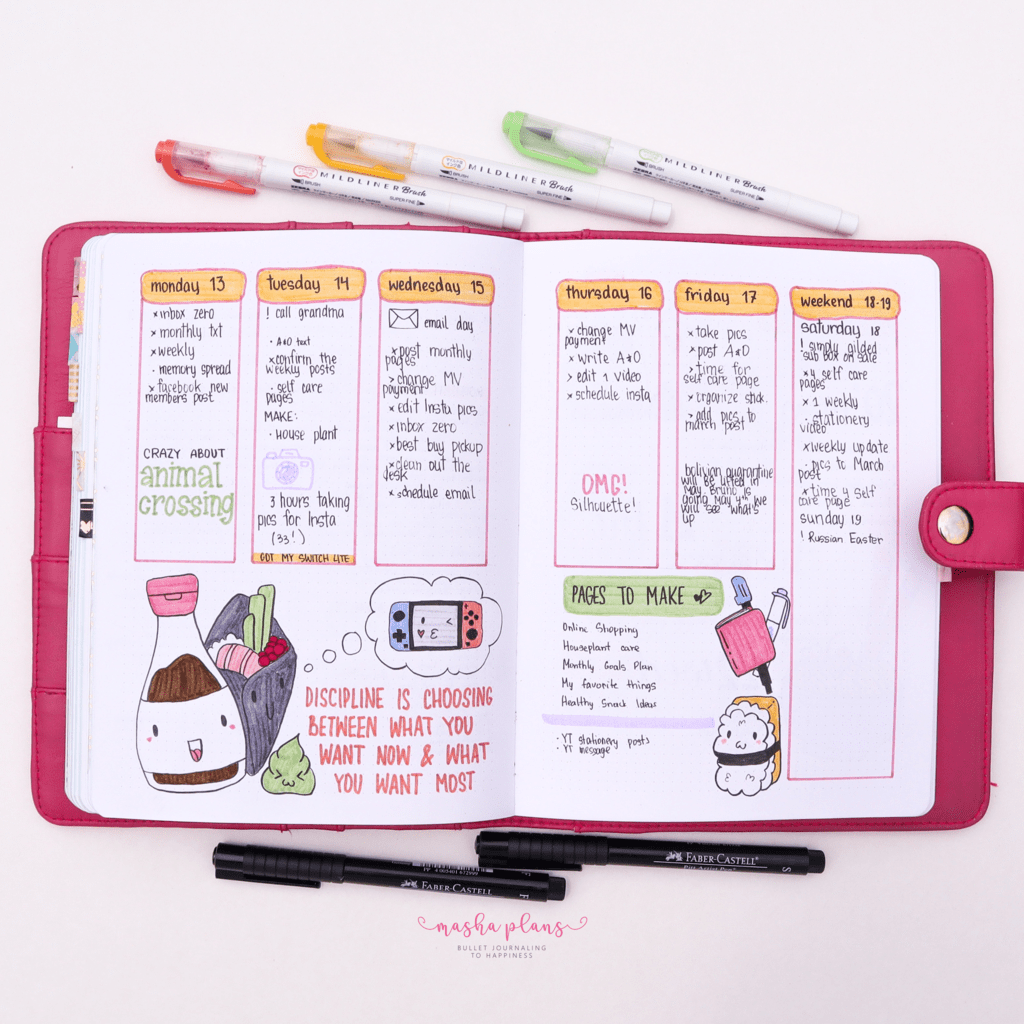 MILDLINER Brush
BRUSH
SUPER FINE
MILDLINER Brush
BRUSH
SUPER FINE
MILDLINER Brush
BRUSH
SUPER FINE
monday 13
x inbox zero
x monthly txt
x weekly
· memory spread
x facebook new
members post
CRAZY ABOUT
animal
crossing
tuesday 14
! call grandma
· A*O text
x confirm the
weekly posts
· self care
pages
MAKE:
· House plant
3 hours taking
pics for Insta
(33!)
GOT MY SWITCH LITE
wednesday 15
email day
x post monthly
pages
> change MV
payment
x edit Insta pics
x inbox zero
x best buy pickup
x clean out the
desk
x schedule email
DISCIPLINE IS CHOOSING
BETWEEN WHAT YOU
WANT NOW & WHAT
YOU WANT MOST
thursday 16
x change MV
payment
x write A*O
> edit 1 video
x schedule insta
OMG!
Silhouette!
friday 17
x take pics
x post A*O
> time for
self care page
x organize stick.
> add pics to
march post
bolivian quarantine
will be lifted in
may. Bruno is
going May 4th we
will see what's
up
weekend 18-19
saturday 18
! simply gilded
sub box on sale
x 4 self care
pages
x 1 weekly
· stationery
video
x weekly update
· pics to March
post
x time 4 self
care page
sunday 19
! Russian Easter
PAGES TO MAKE
Online Shopping
Houseplant care
Monthly Goals Plan
My favorite things
Healthy Snack Ideas
· YT stationery posts
· YT message
FABER-CASTELL
F
FABER-CASTELL
Pitt Artist Pen
S
masha plans
BULLET JOURNALING
TO HAPPINESS